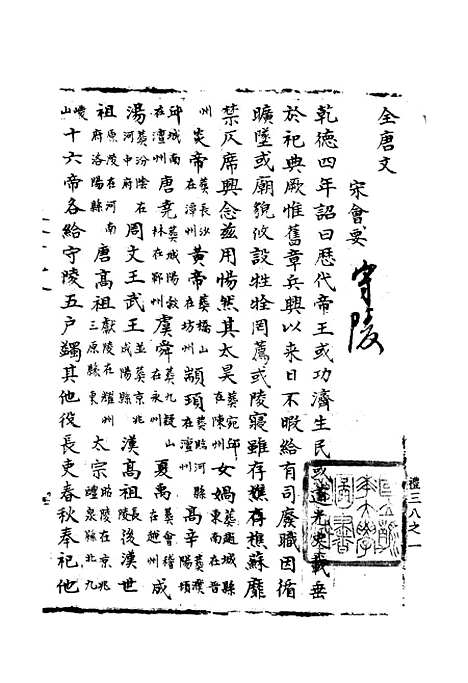 全唐文
宋會要
守陵
乾德四年詔曰歷代帝王或功濟生民或道光史載垂
於祀典厥惟舊章兵興以來日不暇給有司廢職因循
曠墜或廟貌攸設牲牷罔薦或陵寢雖存樵蘇靡
禁仄席興念茲用惕然其太昊葬宛丘在陳州女媧葬趙城縣東南在晉
州炎帝葬長沙在潭州黃帝葬橋山在坊州顓頊葬臨河縣在澶州高辛葬濮陽頓
邱城南在澶州唐堯葬城陽穀林在鄆州虞舜葬九疑山在永州夏禹葬會稽在越州成
湯葬汾陰在河中府周文王武王並葬京兆咸陽縣漢高祖長陵後漢世
祖原陵在河南府洛陽縣唐高祖獻陵在耀州三原縣東太宗昭陵在京兆醴泉縣北九
嵕山十六帝各給守陵五戶蠲其他役長吏春秋奉祀他
禮三八之一